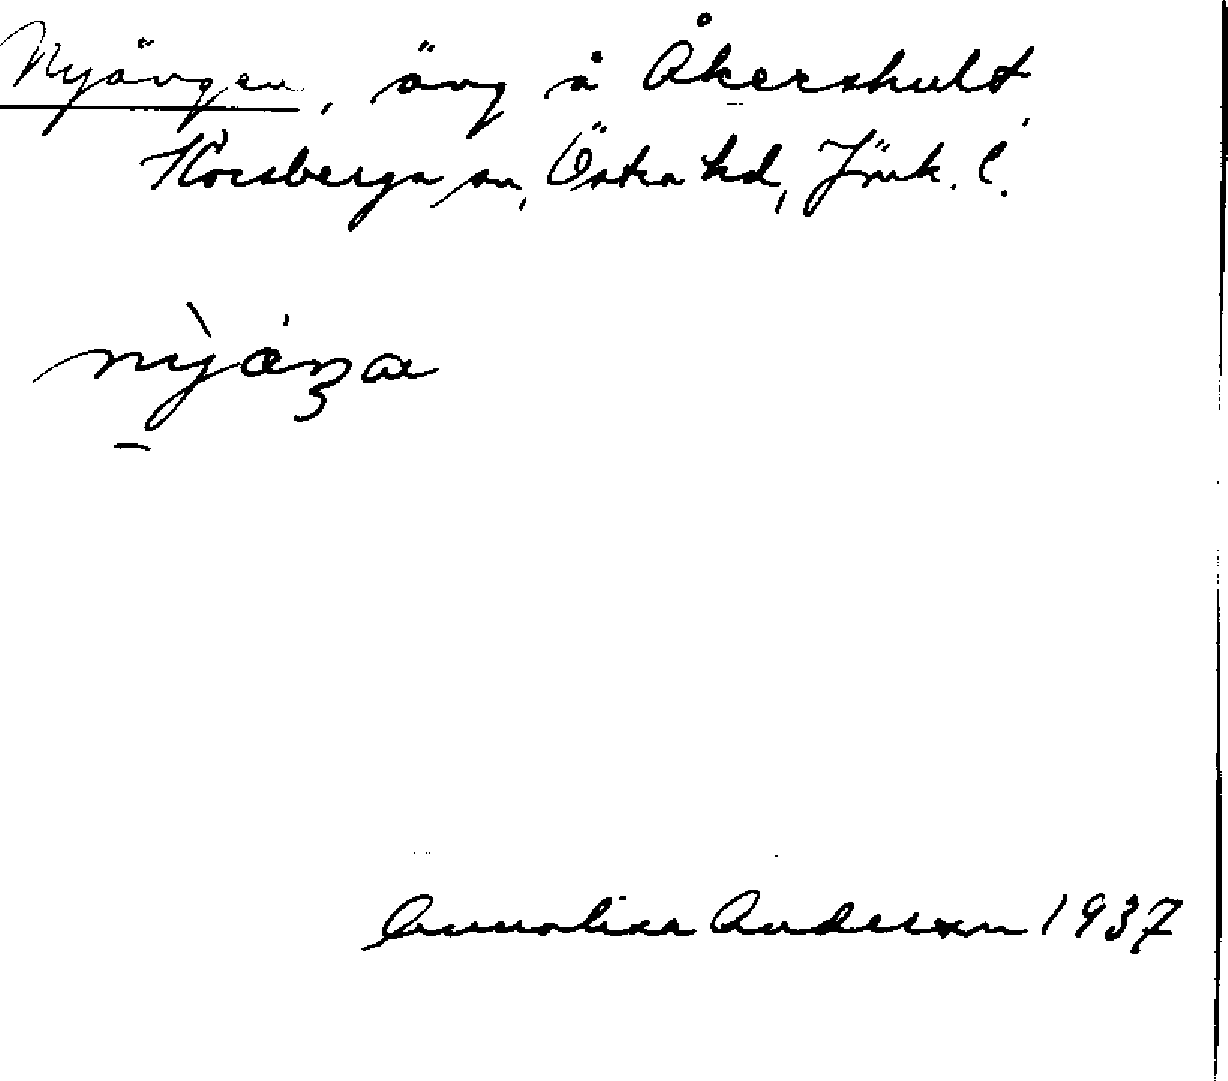 Nyängen, äng å Åkershult,
Korsberga sn, Östra hd, Jönk. l.
Annalisa Anderson 1937